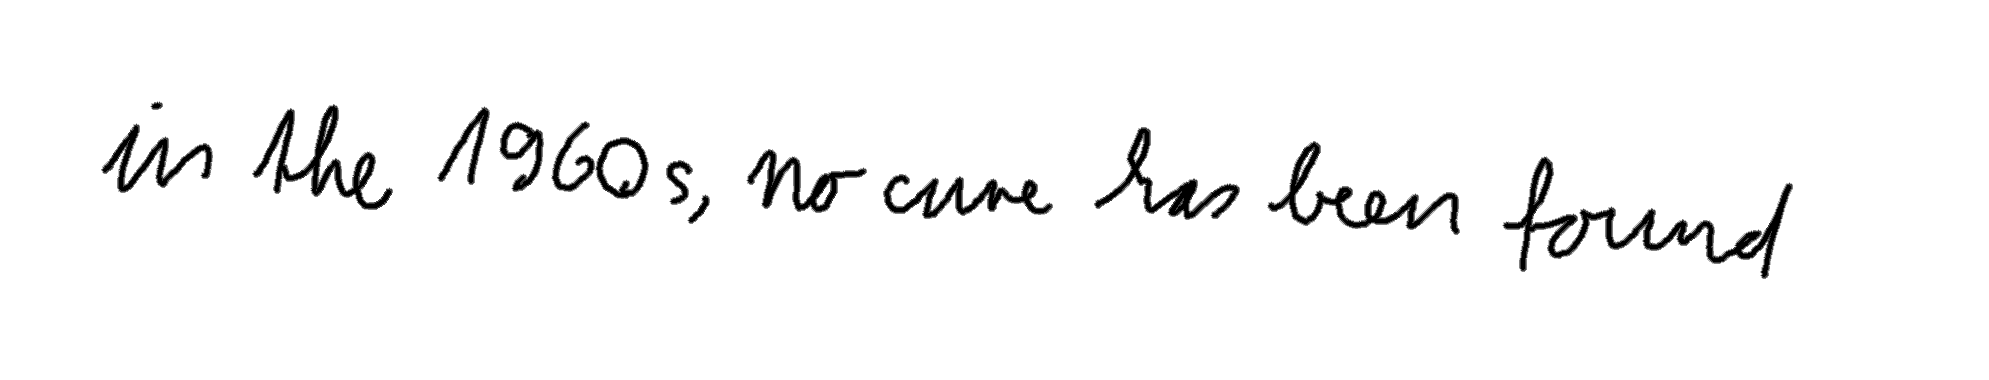 in the 1960s, no cure has been found